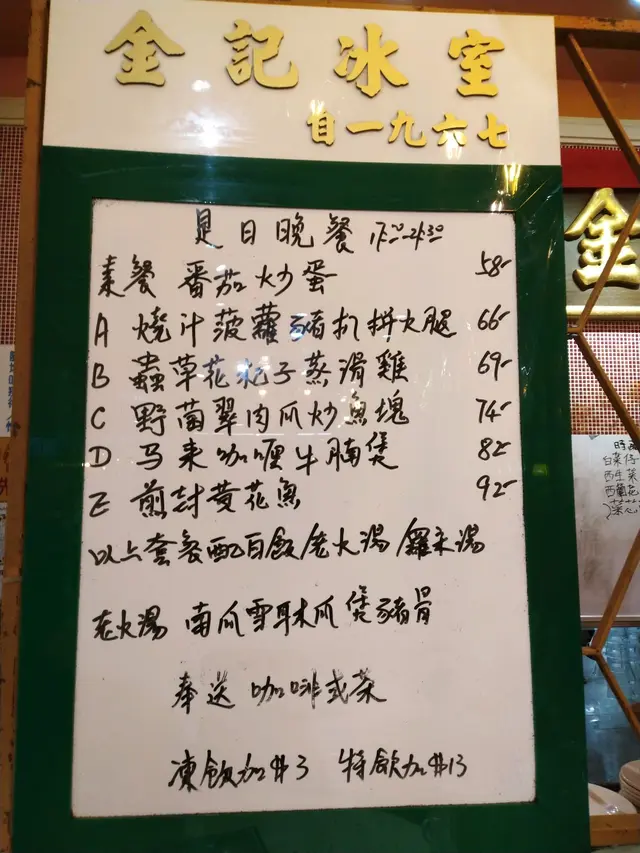 金記冰室
自一九六七
是日晚餐 17:00-21:30
素餐 番茄炒蛋 58-
A 燒汁菠蘿豬扒拼火腿 66-
B 蟲草花杞子蒸滑雞 69-
C 野菌翠肉瓜炒魚塊 74-
D 马来咖喱牛腩煲 82-
E 煎封黄花魚 92-
以上套餐配白飯老火湯 羅宋湯
老火湯 南瓜雪耳木瓜煲豬骨
奉送 咖啡或茶
凍飲加$3 特飲加$13
金
白菜仔
西生菜
西蘭花
菜芯